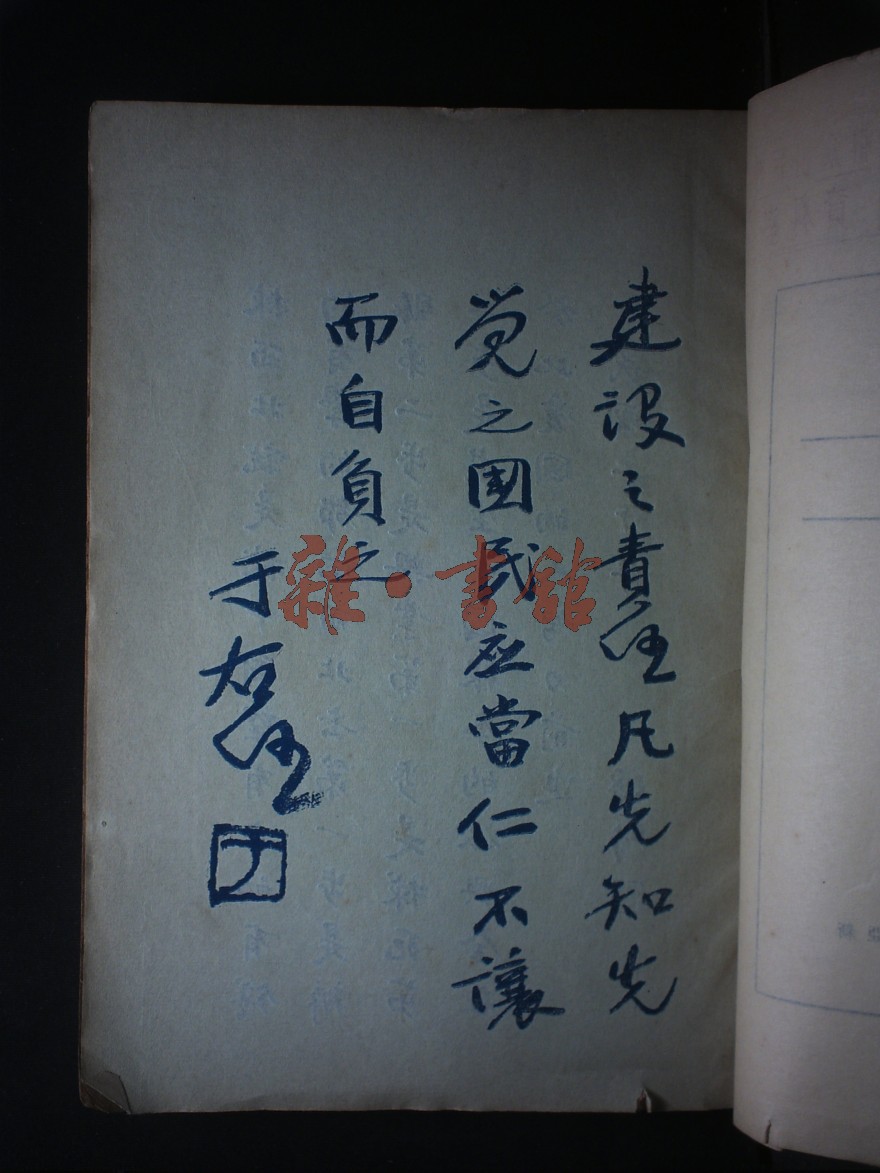 建设之責任凡先知先
觉之國民应當仁不讓
而自負之
于右任
雜·書館